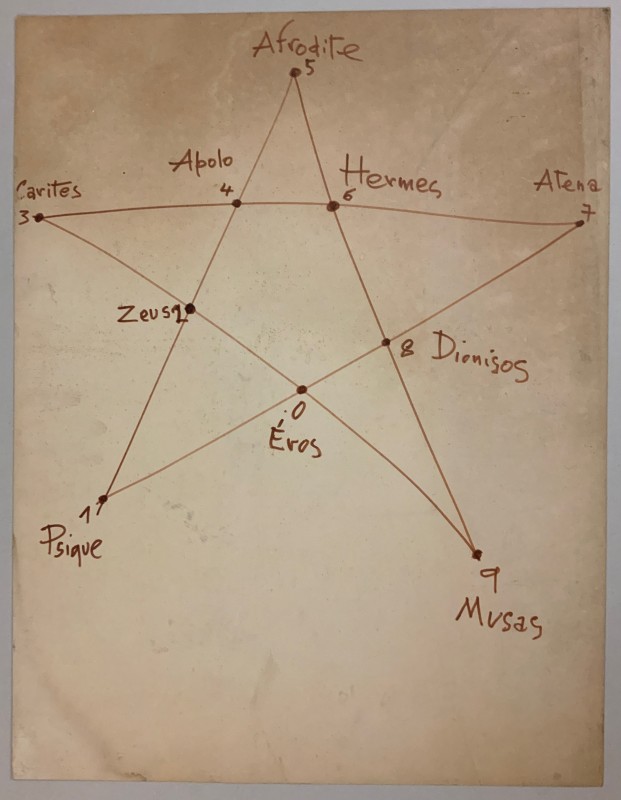 Afrodite
5
Apolo
4
Hermes
6
Carites
3
Atena
7
Zeus 2
8 Dionisos
0
Éros
1
Psique
9
Musas